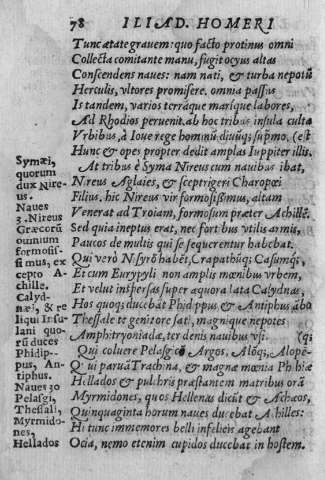 78 ILIAD. HOMERI
Tunc ætate grauem: quo facto protinus omni
Collecta comitante manu, fugit ocyus altas
Conscendens naues: nam nati, & turba nepotũ
Herculis, vltores promisere. omnia passus
Is tandem, varios terráque maríque labores,
Ad Rhodios peruenit. ab hoc tribus insula culta
Vrbibus, à Ioue rege hominũ diuũq; supr̃mo. (est
Hunc & opes propter dedit amplas Iuppiter illis.
At tribus è Syma Nireus cum nauibus ibat,
Nireus Aglaies, & sceptrigeri Charopœi
Filius. hic Nireus vir formosißimus, altam
Venerat ad Troiam, formosum præter Achillẽ.
Sed quia ineptus erat, nec fortibus vtilis armis,
Paucos de multis qui se sequerentur habebat.
Qui verò Nisyrõ habẽt, Crapathũq; Casumq́;,
Et cum Eurypyli non amplis mœnibus vrbem,
Et velut inspersas super æquora lata Calydnas,
Hos quoq; ducebat Phidippus & Antiphus ãbo
Thessale te genitore sati, magnique nepotes
Amphitryoniadæ, ter denis nauibus vsi. (q́;
Qui coluere Pelasgicõ Argos, Alõq;, Alopẽ-
Qui paruã Trachina, & magnæ mœnia Phthiæ
Hellados & pulchris præstantem matribus orã
Myrmidones, quos Hellenas dicũt & Achæos,
Quinquaginta horum naues ducebat Achilles:
Hi tunc immemores belli infelicis agebant
Ocia, nemo etenim cupidos ducebat in hostem.
Symæi,
quorum
dux Nireus.
Naues
3. Nireus
Græcorũ
omnium
formosissimus, excepto Achille.
Calydnæi, & reliqui Insulani quorũ duces
Phidippus, Antiphus.
Naues 30
Pelasgi,
Thessali,
Myrmidones,
Hellados